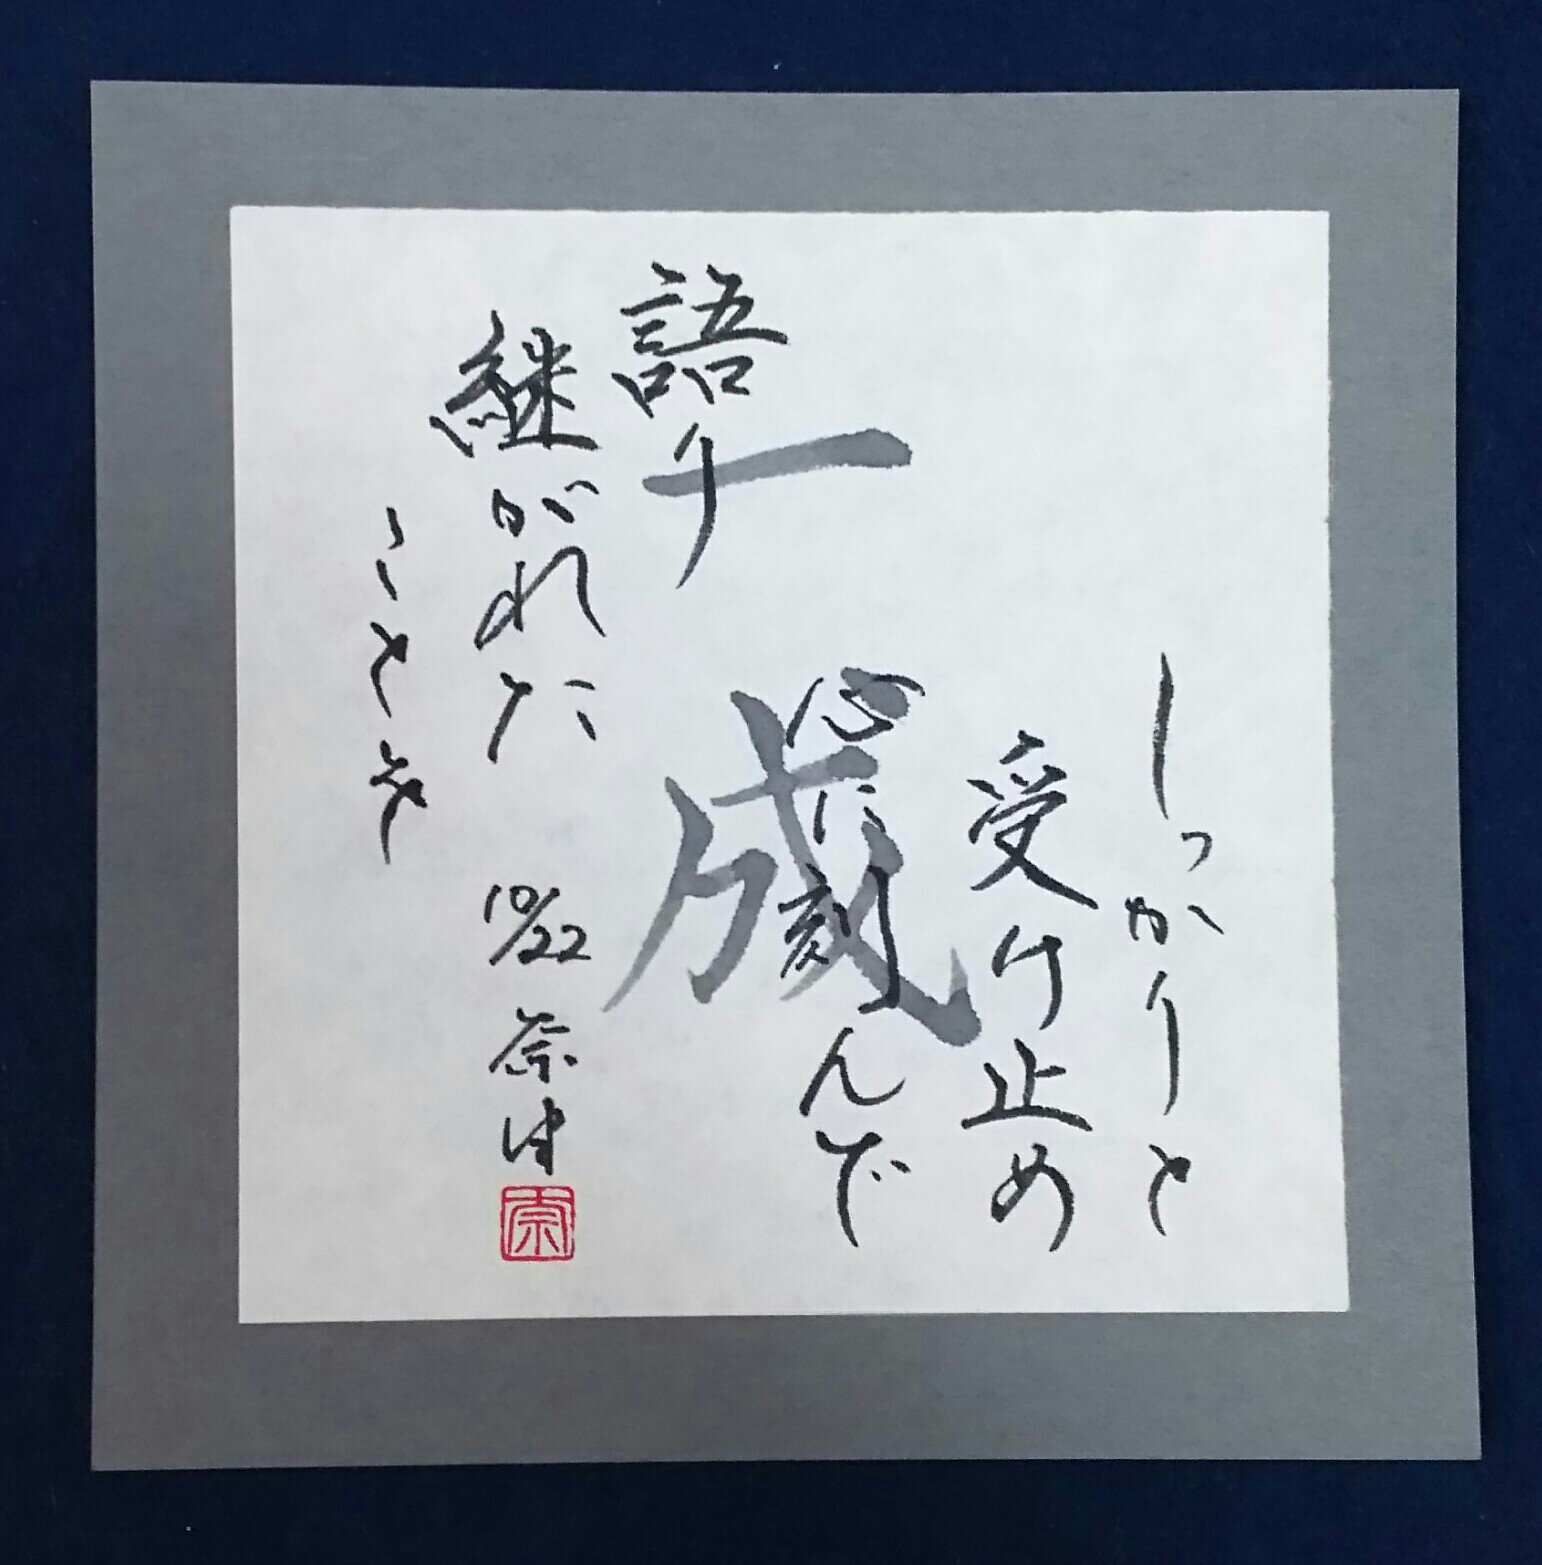 しっかりと
受け止め
心に刻んで
一成
語り
継がれた
ことを
10/22 奈